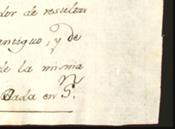 dor de resultar
antiguo, y de
de la misma
Dada en S.